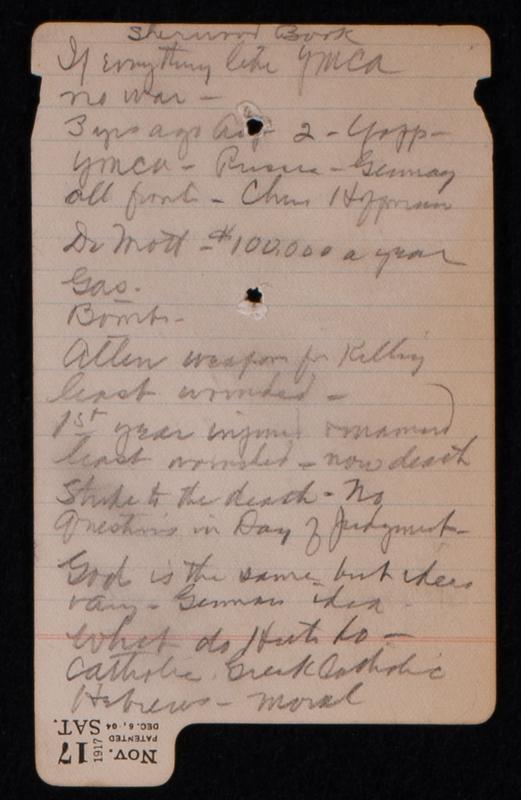 Sherwood Book
If everything like YMCA
no war -
3 yrs ago Aug 2 - Yapp -
YMCA - Russia - Germany
all front -
Dr Mott - $100.000 a year
Gas.
Bombs -
weapon for Killing
least wounded -
1st year injured
least wounded - now death
Strike to the death - No
Questions in Day of Judgment -
God is the same but ideas
vary - German idea
What do
Catholic Greek Catholic
Hebrews - moral
NOV. 17 1917 SAT.
PATENTED DEC. 6, '04